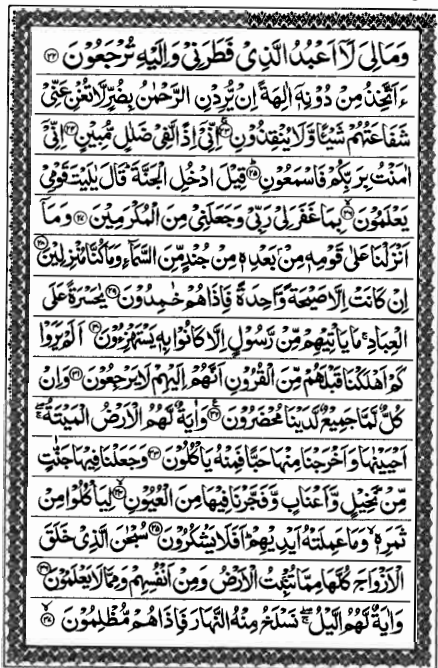 وَمَا لِيَ لَآ اَعۡبُدُ الَّذِىۡ فَطَرَنِىۡ وَاِلَيۡهِ تُرۡجَعُوۡنَ ﴿۲۲﴾
ءَاَتَّخِذُ مِنۡ دُوۡنِهٖۤ اٰلِهَةً اِنۡ يُّرِدۡنِ الرَّحۡمٰنُ بِضُرٍّ لَّا تُغۡنِ عَنِّىۡ
شَفَاعَتُهُمۡ شَيۡـًٔا وَّلَا يُنۡقِذُوۡنِ‌ۚ ﴿۲۳﴾ اِنِّىۡۤ اِذًا لَّفِىۡ ضَلٰلٍ مُّبِيۡنٍ ﴿۲۴﴾ اِنِّىۡۤ
اٰمَنۡتُ بِرَبِّكُمۡ فَاسۡمَعُوۡنِؕ ﴿۲۵﴾ قِيۡلَ ادۡخُلِ الۡجَنَّةَ ؕ قَالَ يٰلَيۡتَ قَوۡمِىۡ
يَعۡلَمُوۡنَۙ ﴿۲۶﴾ بِمَا غَفَرَلِىۡ رَبِّىۡ وَجَعَلَنِىۡ مِنَ الۡمُكۡرَمِيۡنَ ﴿۲۷﴾ وَمَاۤ
اَنۡزَلۡنَا عَلٰى قَوۡمِهٖ مِنۡۢ بَعۡدِهٖ مِنۡ جُنۡدٍ مِّنَ السَّمَآءِ وَمَا كُنَّا مُنۡزِلِيۡنَ ﴿۲۸﴾
اِنۡ كَانَتۡ اِلَّا صَيۡحَةً وَّاحِدَةً فَاِذَا هُمۡ خٰمِدُوۡنَ ﴿۲۹﴾ يٰحَسۡرَةً عَلَى
الۡعِبَادِ ؔۚ مَا يَاۡتِيۡهِمۡ مِّنۡ رَّسُوۡلٍ اِلَّا كَانُوۡا بِهٖ يَسۡتَهۡزِءُوۡنَ ﴿۳۰﴾ اَلَمۡ يَرَوۡا
كَمۡ اَهۡلَـكۡنَا قَبۡلَهُمۡ مِّنَ الۡقُرُوۡنِ اَنَّهُمۡ اِلَيۡهِمۡ لَا يَرۡجِعُوۡنَؕ ﴿۳۱﴾ وَاِنۡ
كُلٌّ لَّمَّا جَمِيۡعٌ لَّدَيۡنَا مُحۡضَرُوۡنَ ﴿۳۲﴾ وَاٰيَةٌ لَّهُمُ الۡاَرۡضُ الۡمَيۡتَةُ ۖۚ
اَحۡيَيۡنٰهَا وَاَخۡرَجۡنَا مِنۡهَا حَبًّا فَمِنۡهُ يَاۡكُلُوۡنَ ﴿۳۳﴾ وَجَعَلۡنَا فِيۡهَا جَنّٰتٍ
مِّنۡ نَّخِيۡلٍ وَّاَعۡنَابٍ وَّفَجَّرۡنَا فِيۡهَا مِنَ الۡعُيُوۡنِۙ ﴿۳۴﴾ لِيَاۡكُلُوۡا مِنۡ
ثَمَرِهٖ ۙ وَمَا عَمِلَتۡهُ اَيۡدِيۡهِمۡ‌ ؕ اَفَلَا يَشۡكُرُوۡنَ ﴿۳۵﴾ سُبۡحٰنَ الَّذِىۡ خَلَقَ
الۡاَزۡوَاجَ كُلَّهَا مِمَّا تُنۡۢبِتُ الۡاَرۡضُ وَمِنۡ اَنۡفُسِهِمۡ وَمِمَّا لَا يَعۡلَمُوۡنَ ﴿۳۶﴾
وَاٰيَةٌ لَّهُمُ الَّيۡلُ ۖۚ نَسۡلَخُ مِنۡهُ النَّهَارَ فَاِذَا هُمۡ مُّظۡلِمُوۡنَۙ ﴿۳۷﴾